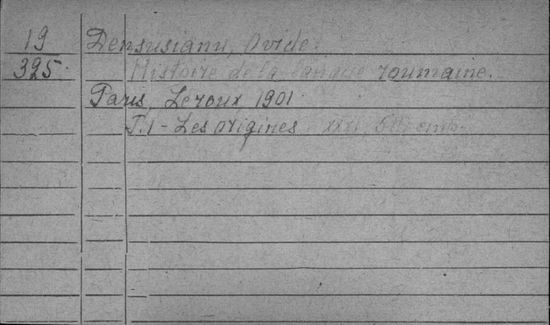 19 Densusianu, Ovide.
395. Histoire de la langue roumaine.
Paris, Leroux 1901
T.1 - Les origines XXXI,